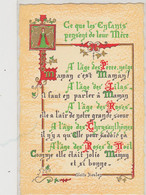 Ce que les Enfants
pensent de leur Mère
A l'âge des Perce-neige
Maman c'est Maman !
A l'âge des Lilas
Il faut en parler à Maman
A l'âge des Roses
elle a l'air de notre grande sœur
A l'âge des Chrysanthèmes
il n'y a qu'elle pour
A l'âge des Roses de Noël
Comme elle était jolie Maman
et si bonne